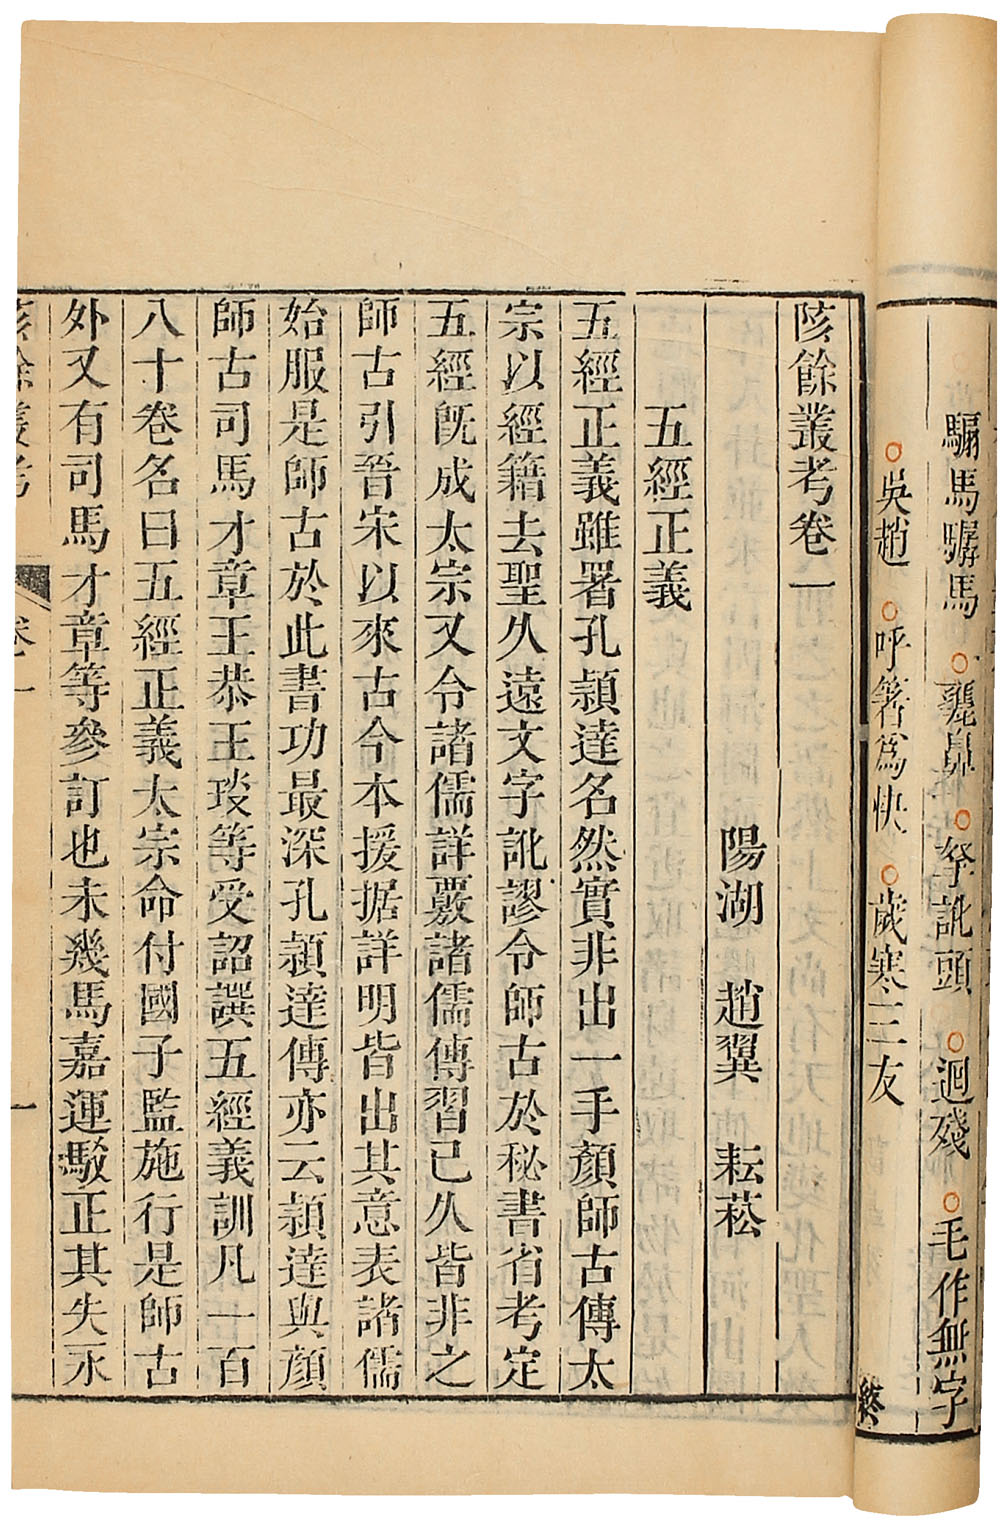 騸馬驏馬 齆鼻 拏訛頭 迴殘 毛作無字
吳趙 呼箸爲快 歲寒三友
終
陔餘叢考卷一
陽湖 趙翼 耘菘
五經正義
五經正義雖署孔穎達名然實非出一手顏師古傳太
宗以經籍去聖久遠文字訛謬令師古於秘書省考定
五經旣成太宗又令諸儒詳覈諸儒傳習已久皆非之
師古引晉宋以來古今本援据詳明皆出其意表諸儒
始服是師古於此書功最深孔穎達傳亦云穎達與顏
師古司馬才章王恭王琰等受詔譔五經義訓凡一百
八十卷名曰五經正義太宗命付國子監施行是師古
外又有司馬才章等參訂也未幾馬嘉運駁正其失永
陔餘叢考 卷一 一